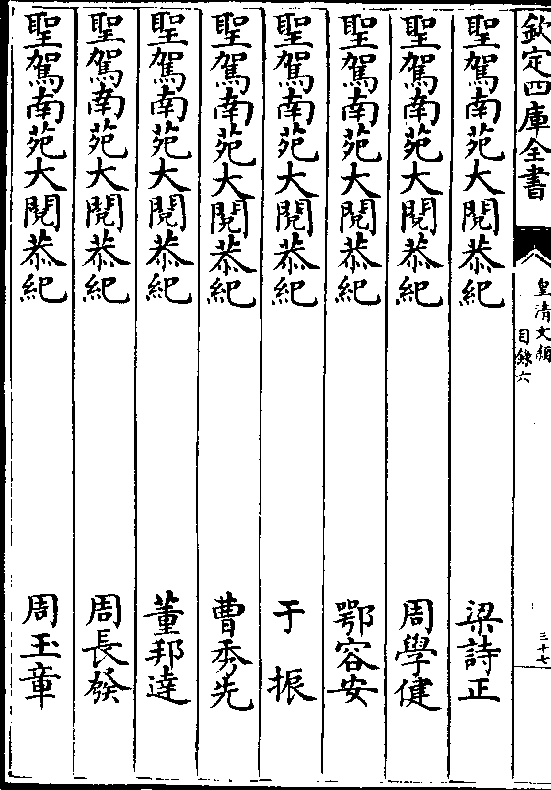 欽定四庫全書
皇清文穎
目錄六
三十七
聖駕南苑大閱恭紀 梁詩正
聖駕南苑大閱恭紀 周學健
聖駕南苑大閱恭紀 鄂容安
聖駕南苑大閱恭紀 于振
聖駕南苑大閱恭紀 曹秀先
聖駕南苑大閱恭紀 董邦達
聖駕南苑大閱恭紀 周長發
聖駕南苑大閱恭紀 周玉章